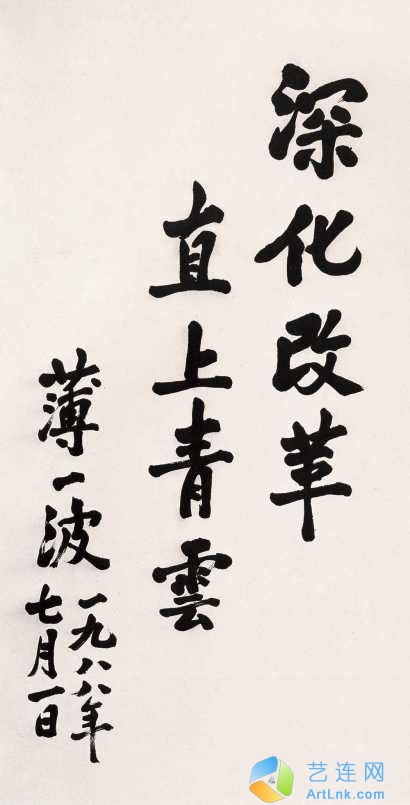 深化改革
直上青雲
薄一波
一九八八年
七月一日
艺连网
ArtLnk.com